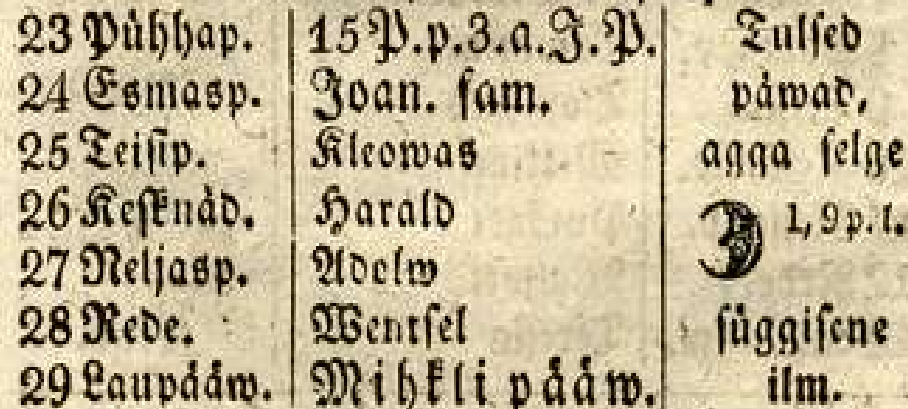 23 Pühhap. 15 P.p.3.a.J.P. Tulsed
24 Esmasp. Joan. sam. päwad,
25 Teisip. Kleowas agga selge
26 Kesknäd. Harald 1,9 p.l.
27 Neljasp. Adolw
28 Rede. Wentsel süggisene
29 Laupääw. Mihkli pääw. ilm.